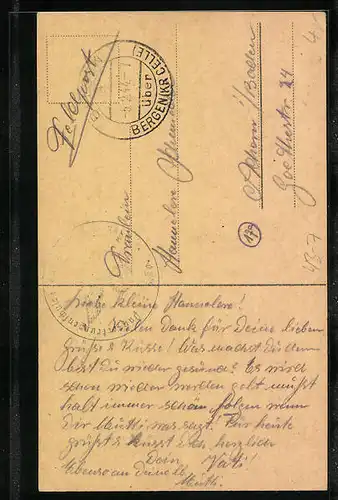 Feldpost
über
BERGEN (KR CELLE)
Fräulein
Hannelore
i/Baden
Goethestr 24
179
43-7
Liebe kleine Hannelore!
Vielen Dank für Deine lieben
Grüße & Küsse! Was machst du denn
bist Du wieder gesund? Es wird
schon wieder werden gelt mußt
halt immer schön folgen wenn
Dir Mutti was sagt! Für heute
grüßt & küsst Dich herzlich
Dein Vati!
Ebenso an die lb.
Mutti.